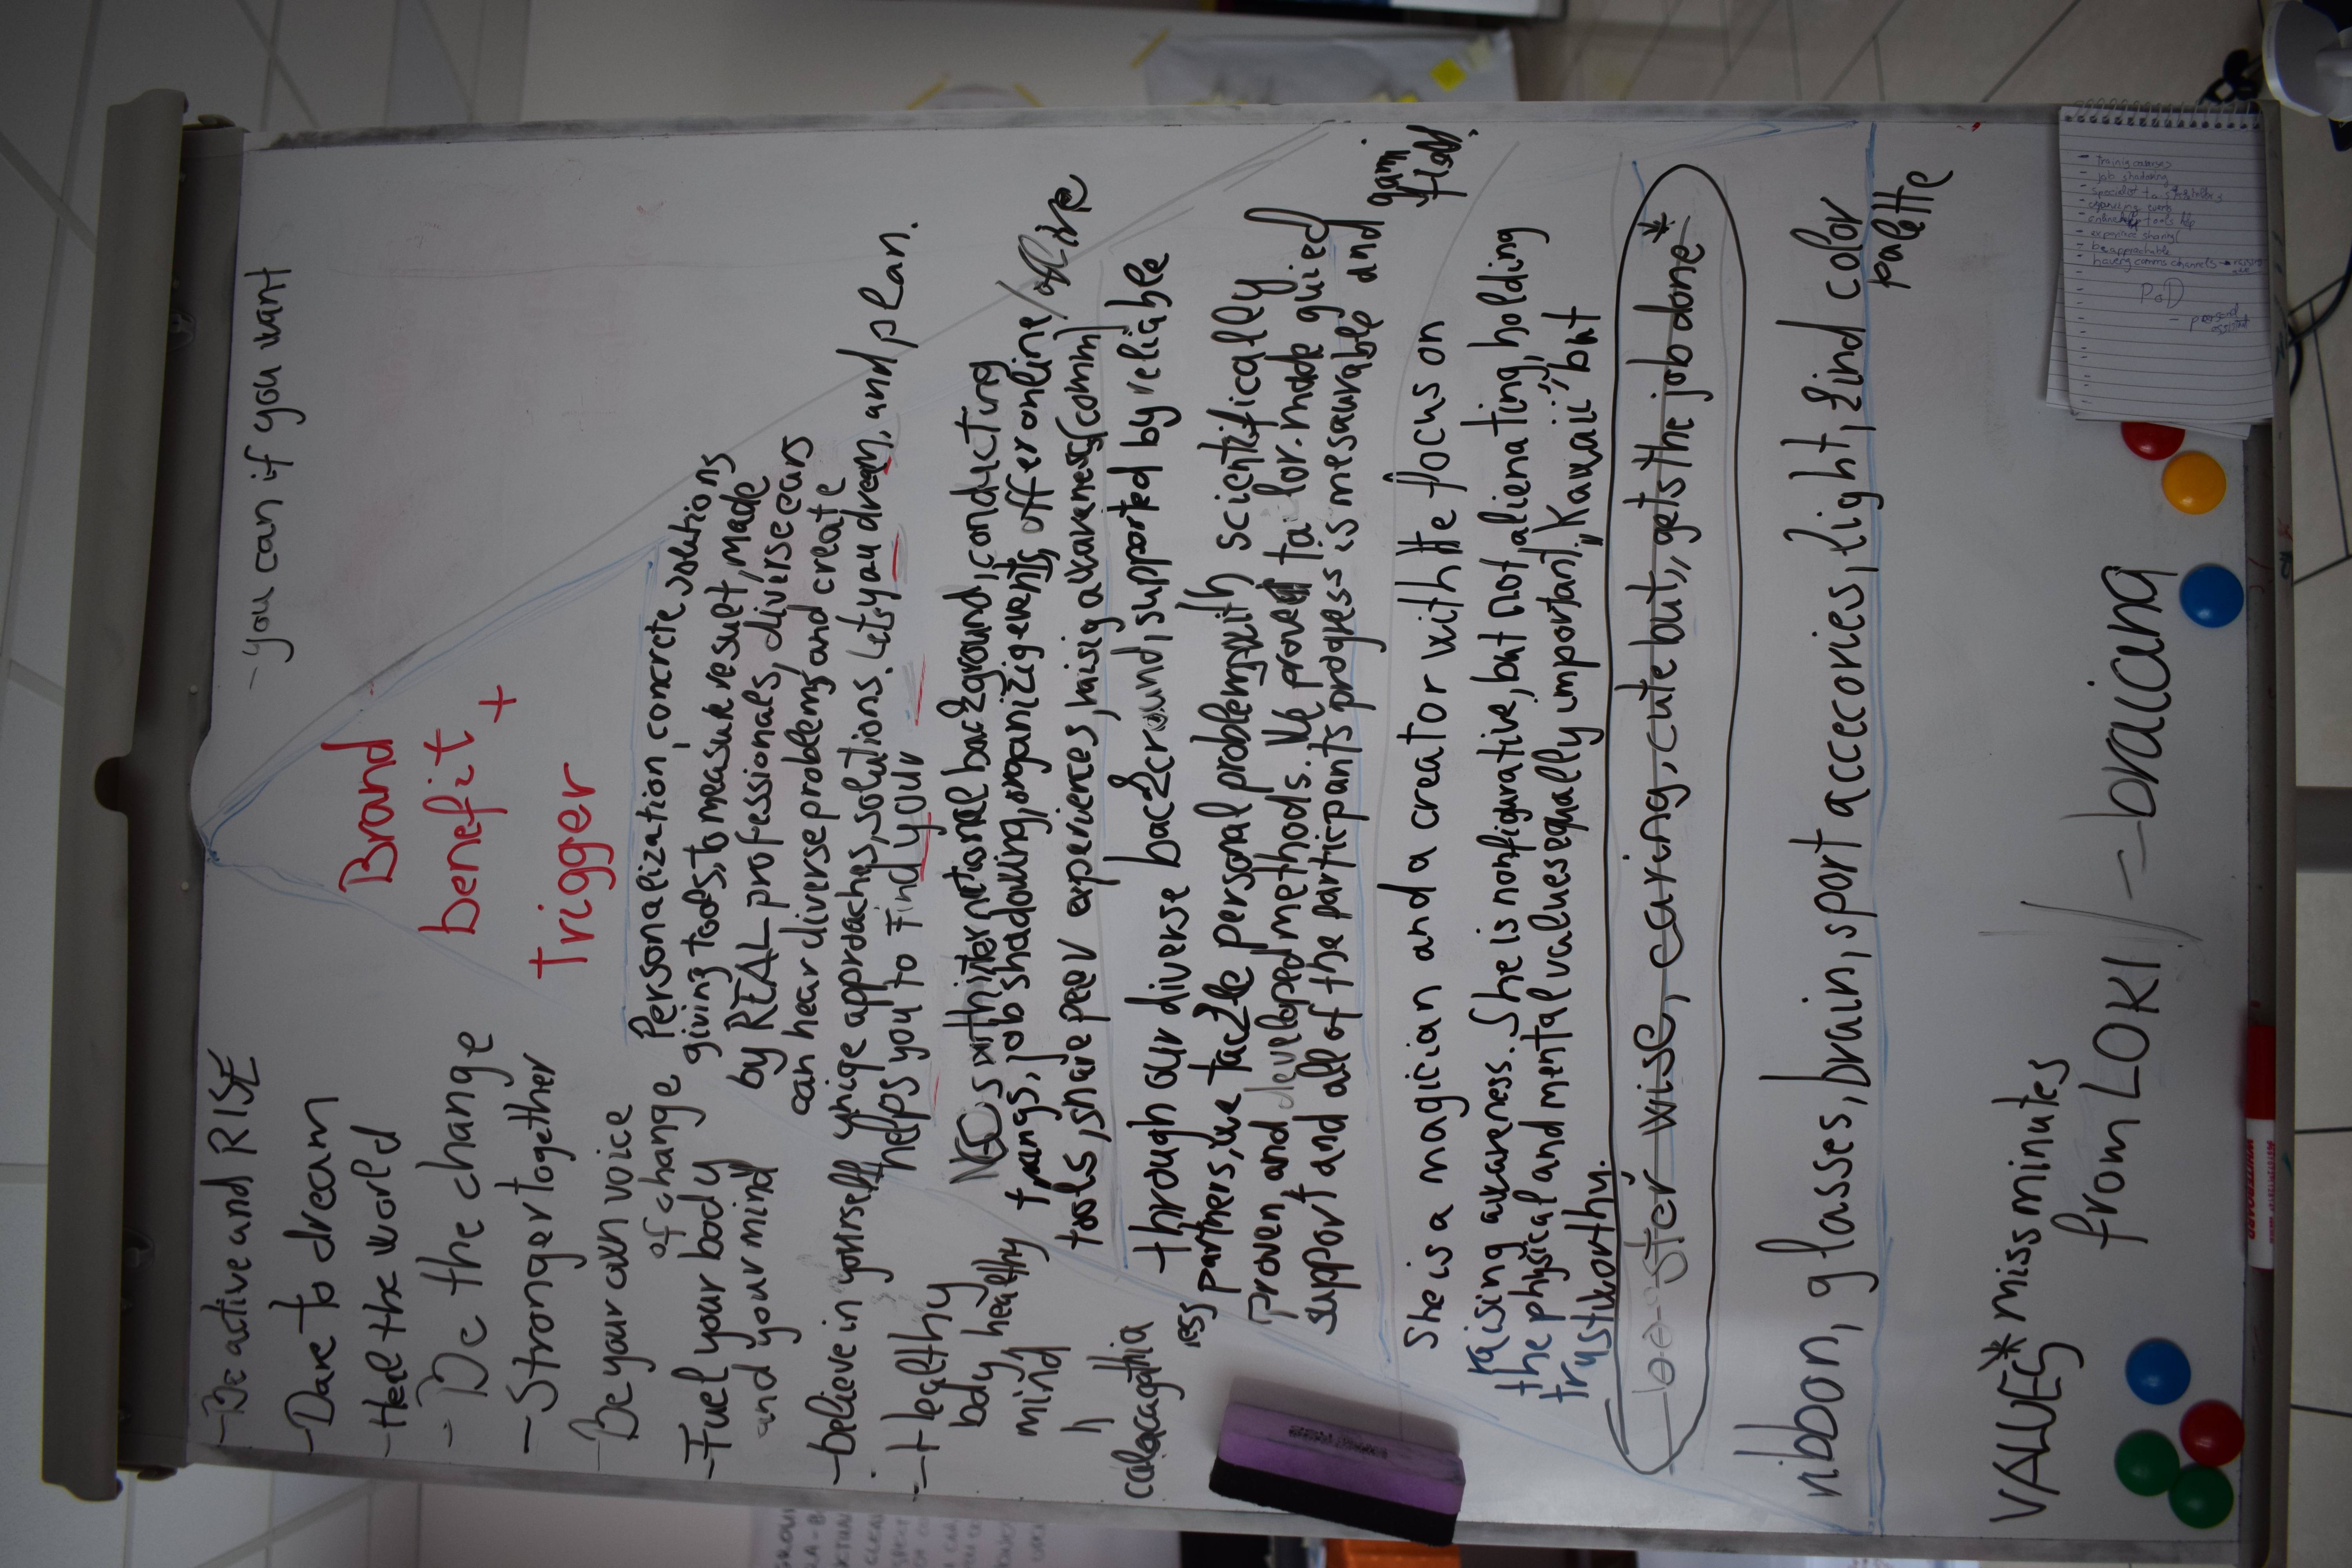 -Be active and RISE
-you can if you want
-Dare to dream
-Heal the world
-Be the change
-Stronger together
-Be your own voice
of change
-Fuel your body
and your mind
-believe in yourself
-Healthy
body healthy
mind
calacagathia
Brand
benefit +
trigger
Personalization, concrete solutions
giving tools, to measure result, made
by REAL professionals, diverse ears
can hear diverse problems, and create
unige approaches, solutions. Lets you dream, and plan.
helps you to Find your
NGOs with international background, conducting
job shadowing, organizig events, offer online/offline
tools, share peer experiences, raisig awareness (comm)
through our diverse background, supported by reliable
partners, we tackle personal problems with scientifically
proven and developed methods.
support and all of the participants progress is mesaurable and
She is a magician and a creator with the focus on
raising awareness. She is nonfigurative, but not alienating, holding
the physical and mental values equally important, "Kawaii" but
trustworthy.
booster wise, caring, cute but "gets the job done"*
ribbon, glasses, brain, sport accecories, light, find color
palette
VALUES* miss minutes
from LOKI
-braicana
- job shadowing
- be approachable
- having comms channels
PoD